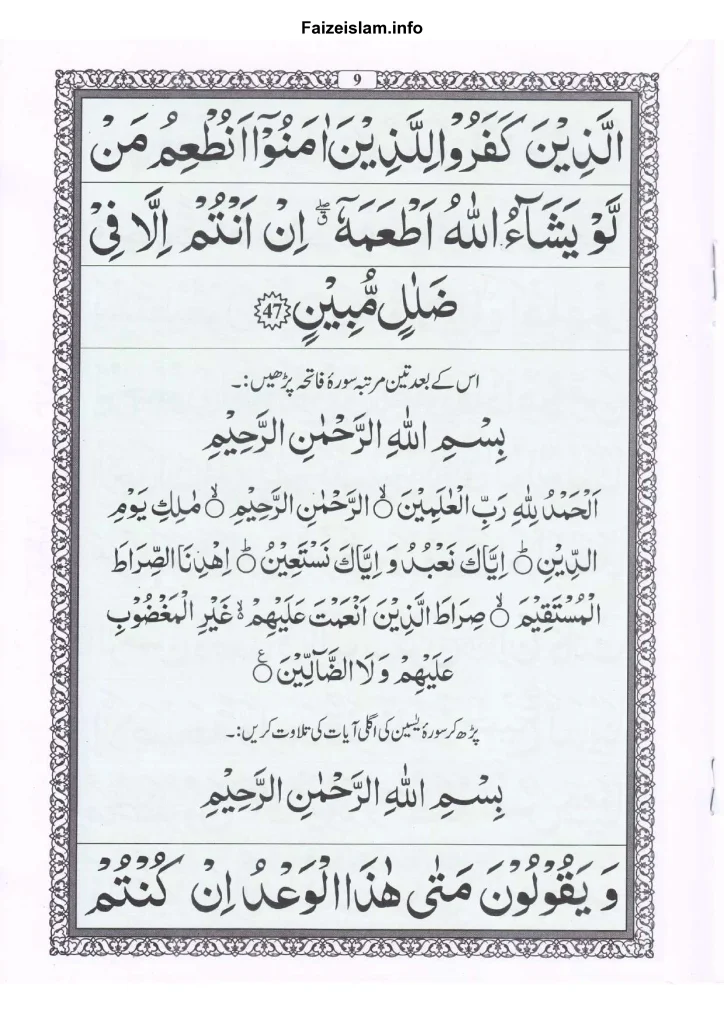 Faizeislam.info
9
الَّذِيْنَ كَفَرُوْا لِلَّذِيْنَ اٰمَنُوْۤا اَنُطْعِمُ مَنْ
لَّوْ يَشَآءُ اللّٰهُ اَطْعَمَهٗۤ ۖۗ اِنْ اَنْتُمْ اِلَّا فِىْ
ضَلٰلٍ مُّبِيْنٍ 47
اس کے بعد تین مرتبہ سورۂ فاتحہ پڑھیں:۔
بِسْمِ اللّٰهِ الرَّحْمٰنِ الرَّحِيْمِ
اَلْحَمْدُ لِلّٰهِ رَبِّ الْعٰلَمِيْنَ ۙ○ الرَّحْمٰنِ الرَّحِيْمِ ۙ○ مٰلِكِ يَوْمِ
الدِّيْنِ ؕ○ اِيَّاكَ نَعْبُدُ وَ اِيَّاكَ نَسْتَعِيْنُ ؕ○ اِهْدِنَا الصِّرَاطَ
الْمُسْتَقِيْمَ ۙ○ صِرَاطَ الَّذِيْنَ اَنْعَمْتَ عَلَيْهِمْ ۙ غَيْرِ الْمَغْضُوْبِ
عَلَيْهِمْ وَلَا الضَّآلِّيْنَ ○ع
پڑھ کر سورۂ یٰسین کی اگلی آیات کی تلاوت کریں:۔
بِسْمِ اللّٰهِ الرَّحْمٰنِ الرَّحِيْمِ
وَ يَقُوْلُوْنَ مَتٰى هٰذَا الْوَعْدُ اِنْ كُنْتُمْ